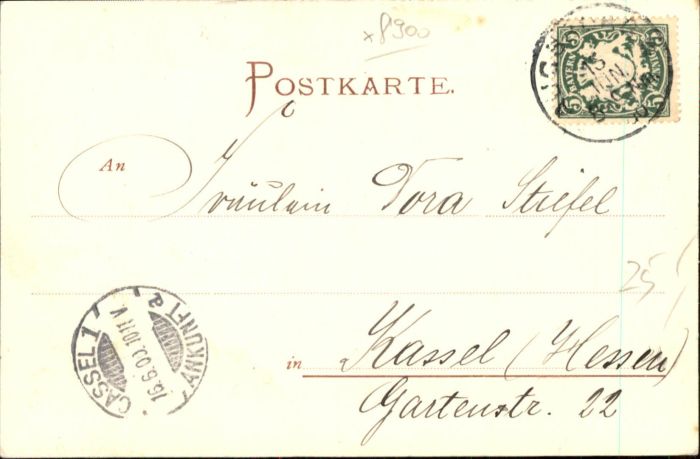 x 8900
POSTKARTE.
5 5
BAYERN
5 5
15 JUN.
An Fräulein Dora Stiefel
25
CASSEL 1
16.6.00.10-11 V.
ANKUNFT
a
in Kassel (Hessen)
Gartenstr. 22